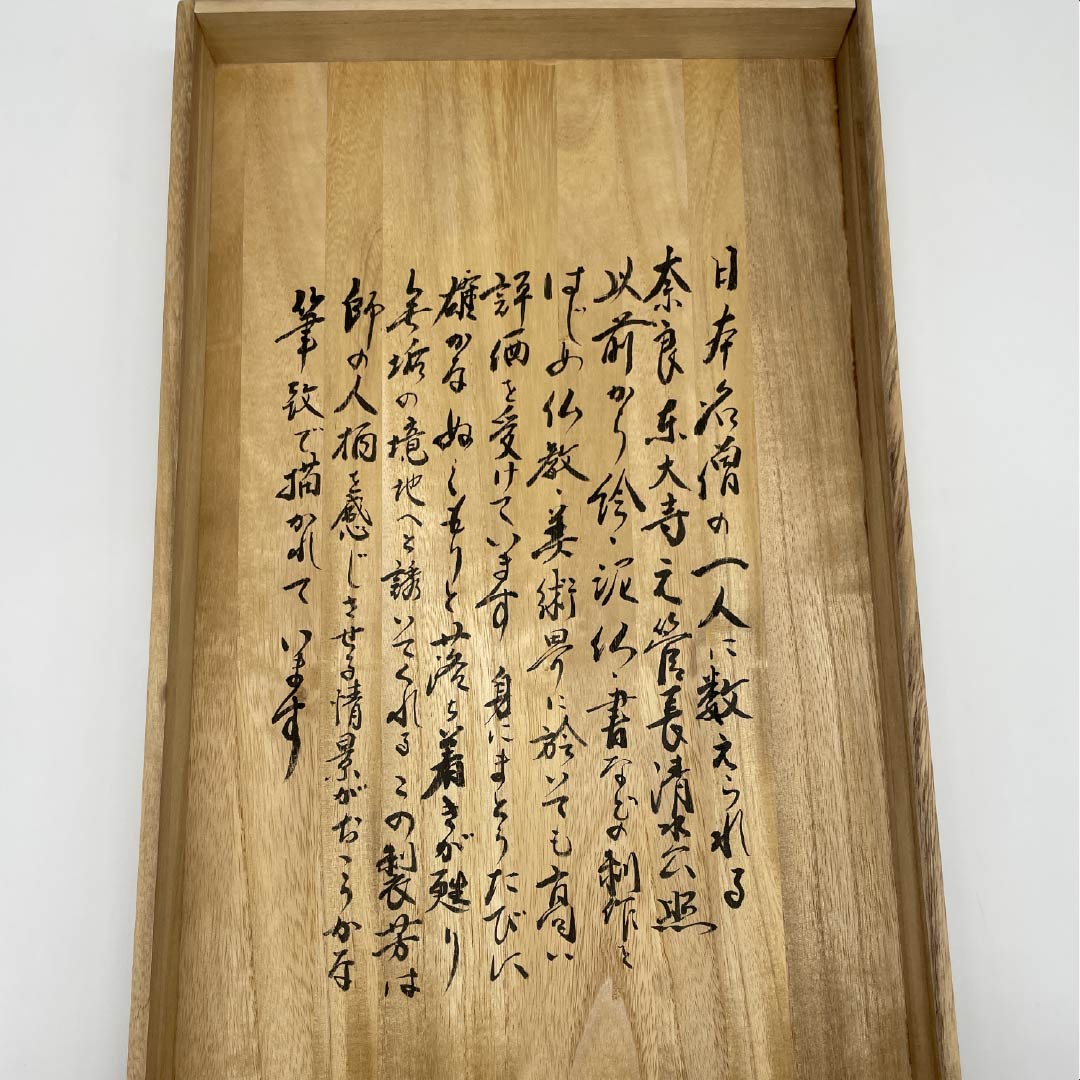 日本名僧の一人に数えられる
奈良東大寺元管長清水公照
以前から絵、泥仏、書などの制作を
はじめ仏教、美術界に於いても高い
評価を受けています 身にまとうたびに
確かなぬくもりと落ち着きが甦り
無垢の境地へと誘いてくれるこの製芳は
師の人柄を感じさせる情景がおゝらかな
筆致で描かれて います